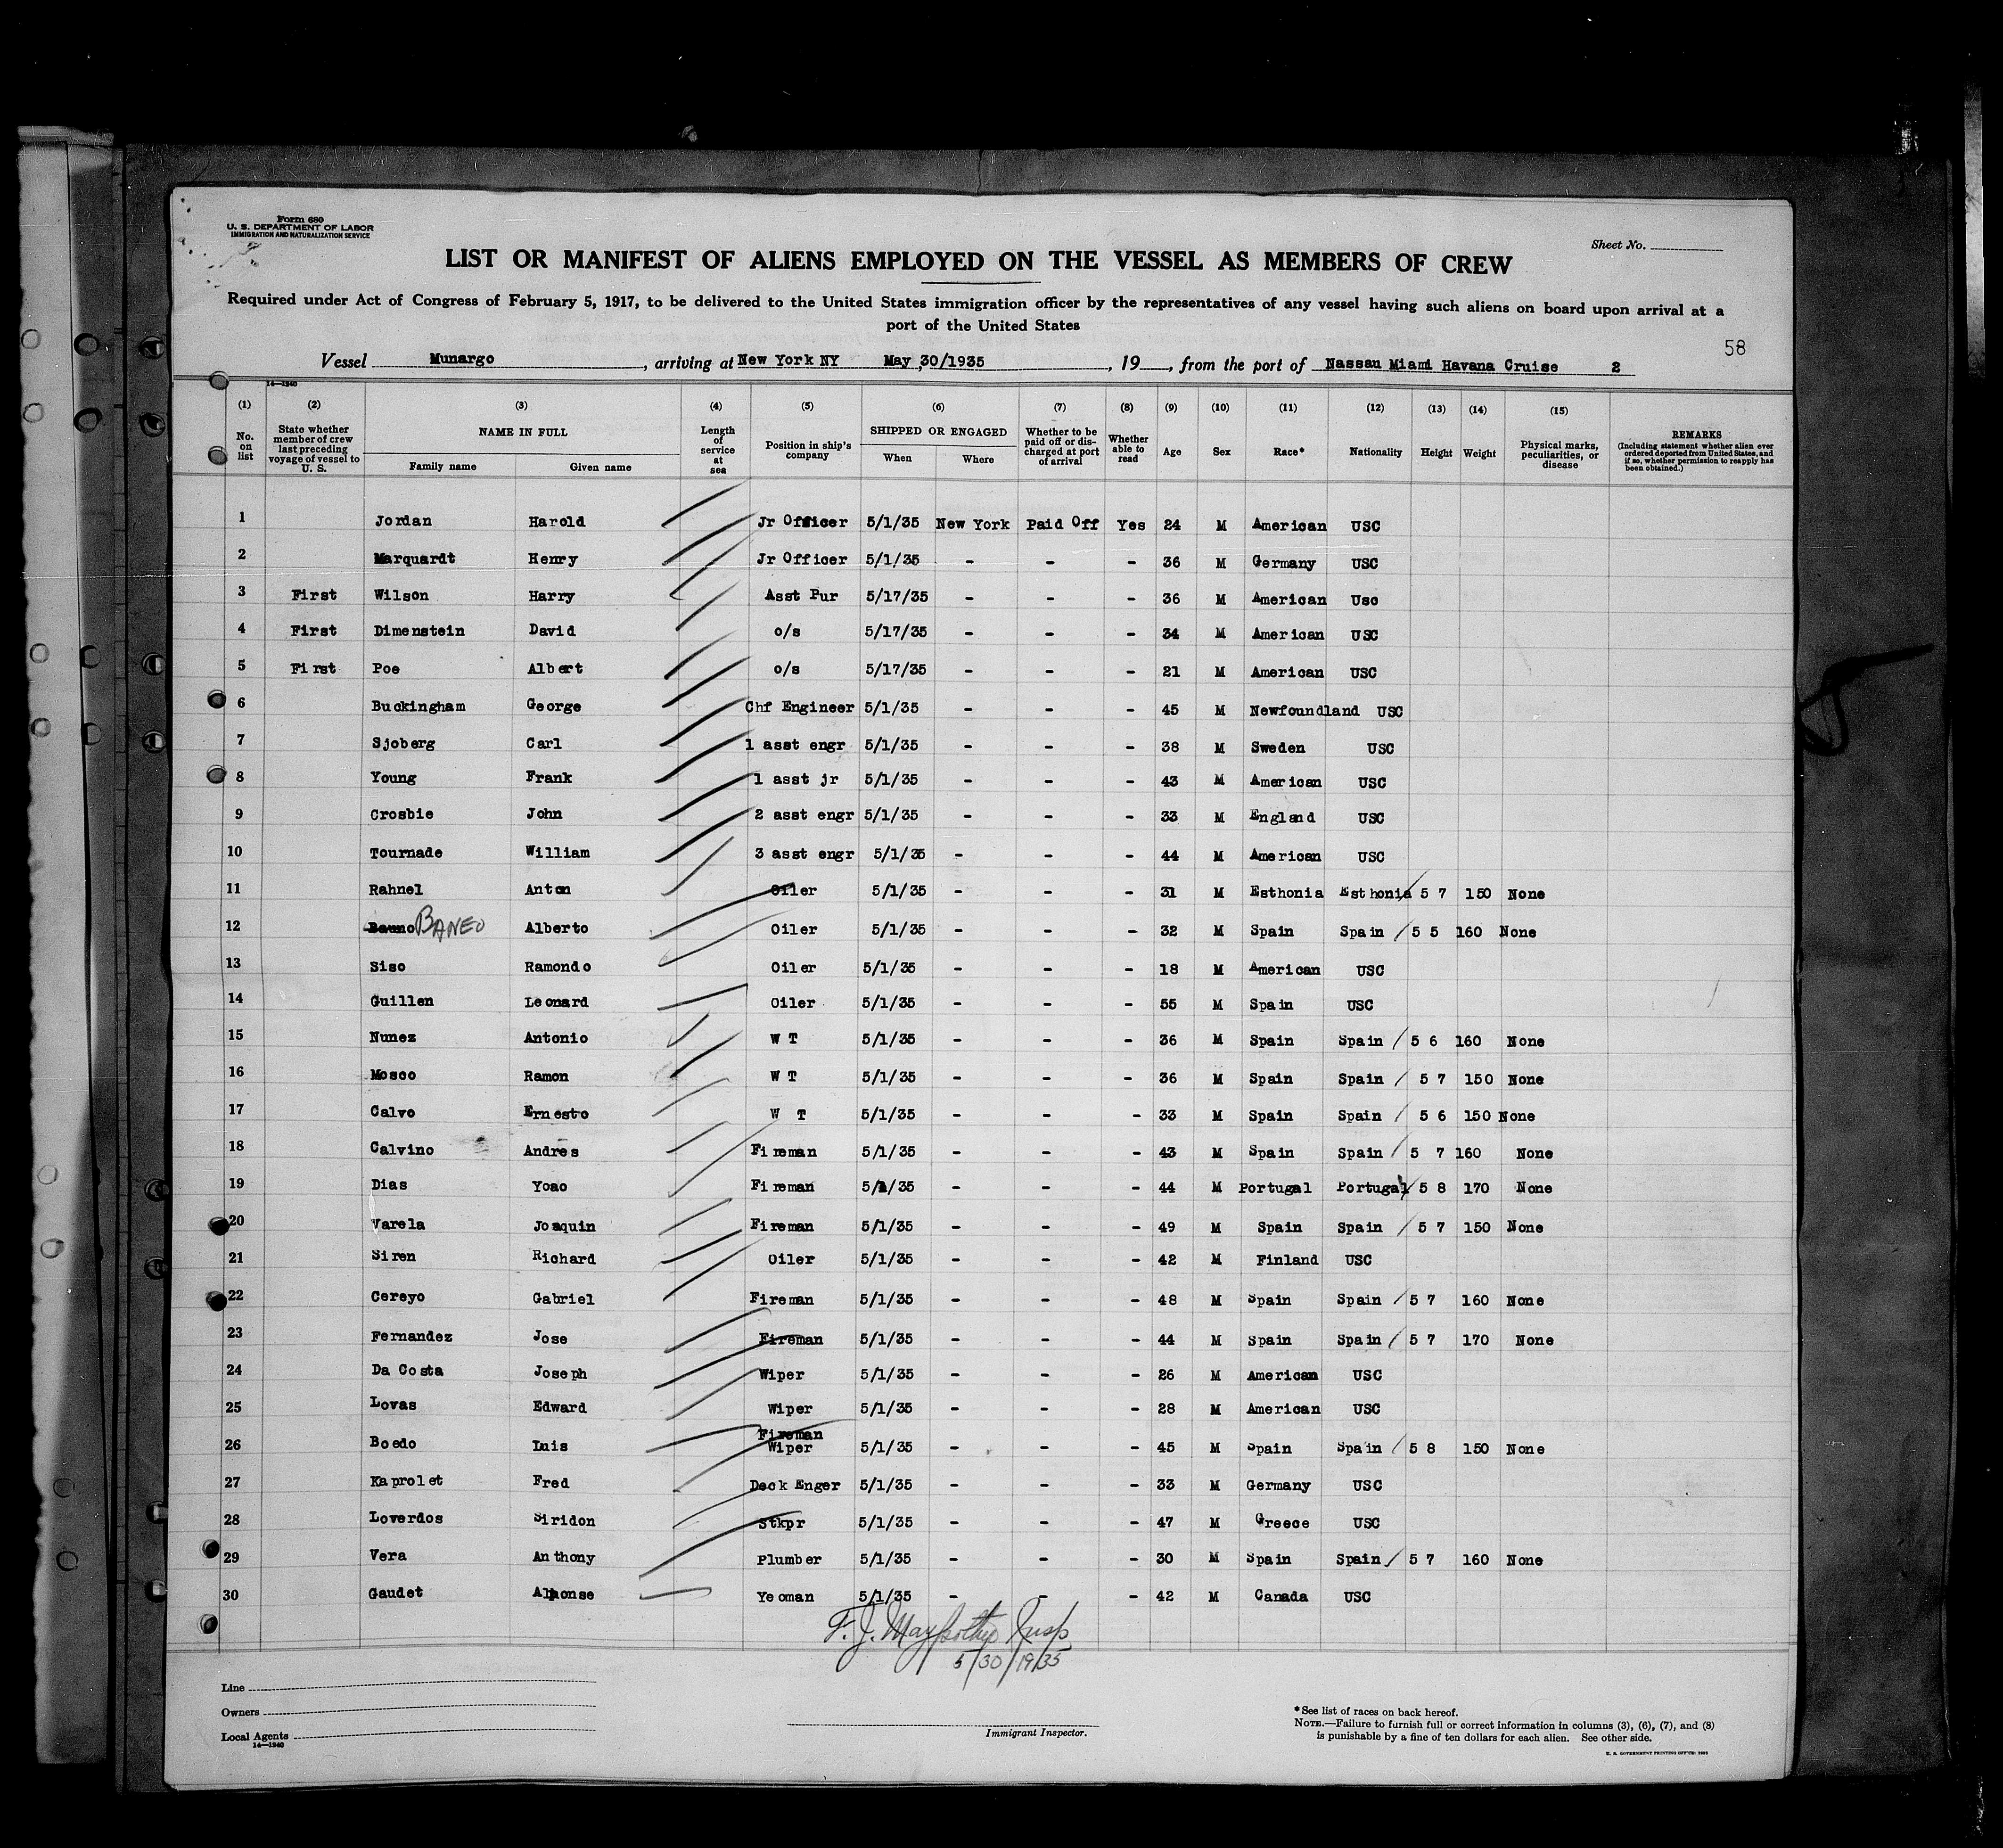 Form 680
U. S. DEPARTMENT OF LABOR
IMMIGRATION AND NATURALIZATION SERVICE
Sheet No.
LIST OR MANIFEST OF ALIENS EMPLOYED ON THE VESSEL AS MEMBERS OF CREW
Required under Act of Congress of February 5, 1917, to be delivered to the United States immigration officer by the representatives of any vessel having such aliens on board upon arrival at a
port of the United States
58
Vessel Munargo, arriving at New York NY May 30/1935, 19, from the port of Nassau Miami Havana Cruise 2
14—1240
(1) (2) (3) (4) (5) (6) (7) (8) (9) (10) (11) (12) (13) (14) (15)
No. on list State whether member of crew last preceding voyage of vessel to U. S. NAME IN FULL Family name Given name Length of service at sea Position in ship's company SHIPPED OR ENGAGED When Where Whether to be paid off or discharged at port of arrival Whether able to read Age Sex Race* Nationality Height Weight Physical marks, peculiarities, or disease REMARKS (Including statement whether alien ever ordered deported from United States, and if so, whether permission to reapply has been obtained.)
1 Jordan Harold Jr Officer 5/1/35 New York Paid Off Yes 24 M American USC
2 Marquardt Henry Jr Officer 5/1/35 - - - 36 M Germany USC
3 First Wilson Harry Asst Pur 5/17/35 - - - 36 M American Usc
4 First Dimenstein David o/s 5/17/35 - - - 34 M American USC
5 First Poe Albert o/s 5/17/35 - - - 21 M American USC
6 Buckingham George Chf Engineer 5/1/35 - - - 45 M Newfoundland USC
7 Sjoberg Carl 1 asst engr 5/1/35 - - - 38 M Sweden USC
8 Young Frank 1 asst jr 5/1/35 - - - 43 M American USC
9 Crosbie John 2 asst engr 5/1/35 - - - 33 M England USC
10 Tournade William 3 asst engr 5/1/35 - - - 44 M American USC
11 Rahnel Anton Oiler 5/1/35 - - - 31 M Esthonia Esthonia 5 7 150 None
12 BANEO Alberto Oiler 5/1/35 - - - 32 M Spain Spain 5 5 160 None
13 Siso Ramondo Oiler 5/1/35 - - - 18 M American USC
14 Guillen Leonard Oiler 5/1/35 - - - 55 M Spain USC
15 Nunez Antonio W T 5/1/35 - - - 36 M Spain Spain 5 6 160 None
16 Mosco Ramon W T 5/1/35 - - - 36 M Spain Spain 5 7 150 None
17 Calvo Ernesto W T 5/1/35 - - - 33 M Spain Spain 5 6 150 None
18 Calvino Andres Fireman 5/1/35 - - - 43 M Spain Spain 5 7 160 None
19 Dias Yoao Fireman 5/1/35 - - - 44 M Portugal Portugal 5 8 170 None
20 Varela Joaquin Fireman 5/1/35 - - - 49 M Spain Spain 5 7 150 None
21 Siren Richard Oiler 5/1/35 - - - 42 M Finland USC
22 Cereyo Gabriel Fireman 5/1/35 - - - 48 M Spain Spain 5 7 160 None
23 Fernandez Jose Fireman 5/1/35 - - - 44 M Spain Spain 5 7 170 None
24 Da Costa Joseph Wiper 5/1/35 - - - 26 M American USC
25 Lovas Edward Wiper 5/1/35 - - - 28 M American USC
26 Boedo Luis Fireman Wiper 5/1/35 - - - 45 M Spain Spain 5 8 150 None
27 Kaprolet Fred Deck Enger 5/1/35 - - - 33 M Germany USC
28 Loverdos Siridon Stkpr 5/1/35 - - - 47 M Greece USC
29 Vera Anthony Plumber 5/1/35 - - - 30 M Spain Spain 5 7 160 None
30 Gaudet Alphonse Yeoman 5/1/35 - - - 42 M Canada USC
F. J. Insp
5/30/1935
Line
Owners
Local Agents
14—1240
Immigrant Inspector.
*See list of races on back hereof.
NOTE.—Failure to furnish full or correct information in columns (3), (6), (7), and (8)
is punishable by a fine of ten dollars for each alien. See other side.
U. S. GOVERNMENT PRINTING OFFICE: